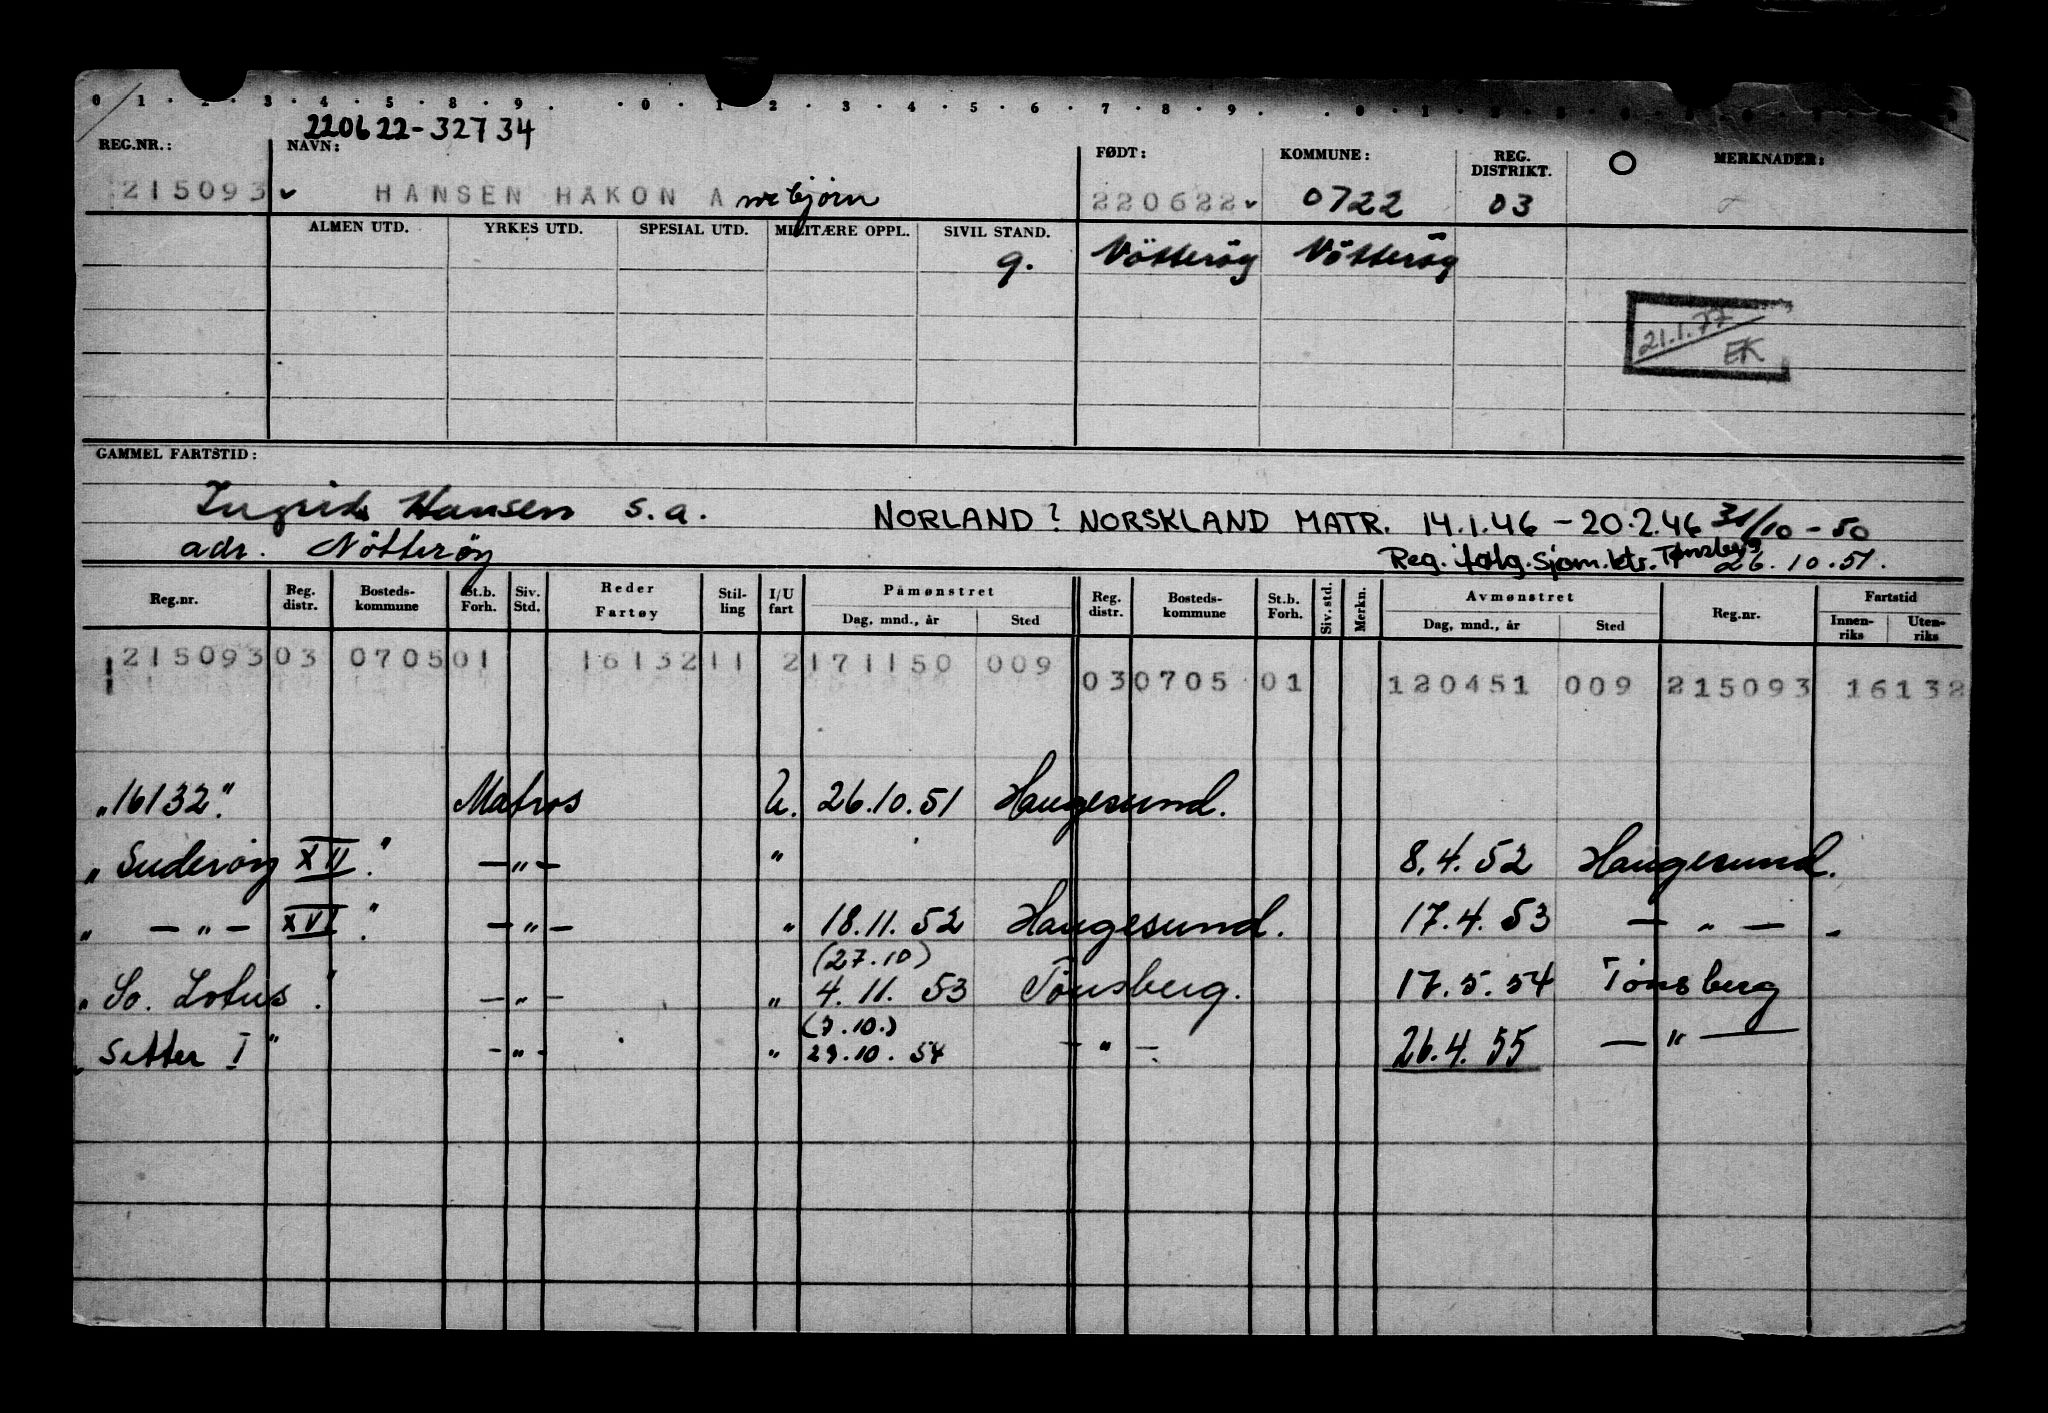 0 1 . 2 . 3 . 4 . 5 . 8 . 9 . . 0 . 1 2 . 3 . 4 . 5 . 6 . 7 . 8 . 9 .
220622-32734
REG.NR.: NAVN: FØDT: KOMMUNE: REG. DISTRIKT. MERKNADER:
215093 HANSEN HAKON Arnebjørn 220622 0722 03
ALMEN UTD. YRKES UTD. SPESIAL UTD. MILITÆRE OPPL. SIVIL STAND.
g. Nötteröy Nötteröy
21.1.77 EK
GAMMEL FARTSTID:
Ingrid Hansen s.a. NORLAND? NORSKLAND MATR. 14.1.46 - 20.2.46 31/10-50
adr. Nötteröy Reg. ifølg. Sjøm.ktr. Tønsberg 26.10.51.
Reg.nr. Reg. distr. Bosteds-kommune St.b. Forh. Siv. Std. Reder Fartøy Stil-ling I/U fart Påmønstret Dag, mnd., år Sted Reg. distr. Bosteds-kommune St.b. Forh. Siv. std. Merkn. Avmønstret Dag, mnd., år Sted Reg.nr. Fartstid Innen-riks Uten-riks
215093 03 0705 01 16132 11 2 171150 009 03 0705 01 120451 009 215093 16132
"16132". Matros U. 26.10.51 Haugesund.
"Suderöy XV". - " - " 8.4.52 Haugesund.
" - " - XVI". - " - " 18.11.52 Haugesund. 17.4.53 - " -
(27.10)
"So. Lotus." - " - " 4.11.53 Tönsberg. 17.5.54 Tönsberg
(7.10.)
"Setter I" - " - " 29.10.54 - " - 26.4.55 - " -